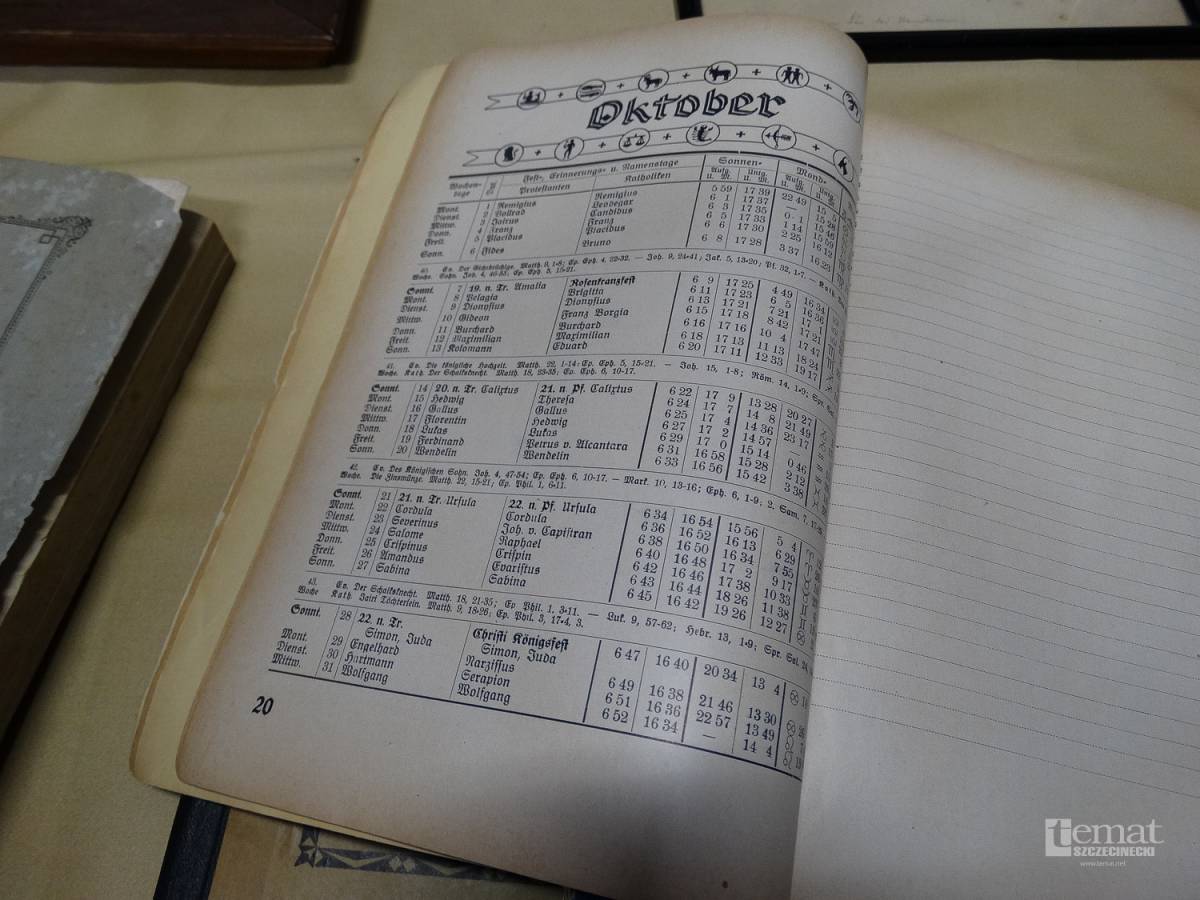 Oktober
Wochen- tage Fest-, Erinnerungs- u. Namenstage Sonnen- Mond-
Protestanten Katholiken Aufg. Untg. Aufg. Untg.
u. M. u. M. u. M. u. M.
Mont. 1 Remigius Remigius 5 59 17 39 22 49 15 5
Dienst. 2 Vollrad Leodegar 6 1 17 37 — 15 28
Mittw. 3 Jairus Candidus 6 3 17 35 0 1 15 46
Donn. 4 Franz Franz 6 5 17 33 1 14 15 59
Freit. 5 Placidus Placidus 6 6 17 30 2 25 16 12
Sonn. 6 Fides Bruno 6 8 17 28 3 37 16 23
40. Ev. Der Gichtbrüchige. Matth. 9, 1-8; Ep. Eph. 4, 22-32. — Joh. 9, 24-41; Jak. 5, 13-20; Pf. 32, 1-7. — Kath.
Woche. Sohn. Joh. 4, 46-53, Ep. Eph. 5, 15-21.
Sonnt. 7 19. n. Tr. Amalia Rosenkranzfest 6 9 17 25 4 49 16 34
Mont. 8 Pelagia Brigitta 6 11 17 23 6 5 16 36
Dienst. 9 Dionysius Dionysius 6 13 17 21 7 21 17 1
Mittw. 10 Gideon Franz Borgia 6 15 17 18 8 42 17 21
Donn. 11 Burchard Burchard 6 16 17 16 10 4 17 47
Freit. 12 Maximilian Maximilian 6 18 17 13 11 13 18 24
Sonn. 13 Kolomann Eduard 6 20 17 11 12 33 19 17
41. Ev. Die königliche Hochzeit. Matth. 22, 1-14; Ep. Eph. 5, 15-21. — Joh. 15, 1-8; Röm. 14, 1-9; Spr.
Woche. Kath. Der Schalksknecht. Matth. 18, 23-35; Ep. Eph. 6, 10-17.
Sonnt. 14 20. n. Tr. Calixtus 21. n. Pf. Calixtus 6 22 17 9 13 28 20 27
Mont. 15 Hedwig Theresa 6 24 17 7 14 8 21 49
Dienst. 16 Gallus Gallus 6 25 17 4 14 36 23 17
Mittw. 17 Florentin Hedwig 6 27 17 2 14 57 —
Donn. 18 Lukas Lukas 6 29 17 0 15 14 0 46
Freit. 19 Ferdinand Petrus v. Alcantara 6 31 16 58 15 28 2 12
Sonn. 20 Wendelin Wendelin 6 33 16 56 15 42 3 38
42. Ev. Des Königischen Sohn. Joh. 4, 47-54; Ep. Eph. 6, 10-17. — Mark. 10, 13-16; Eph. 6, 1-9; 2. Sam. 7, 17-
Woche. Die Zinsmünze. Matth. 22, 15-21; Ep. Phil. 1, 6-11.
Sonnt. 21 21. n. Tr. Ursula 22. n. Pf. Ursula 6 34 16 54 15 56 5 4
Mont. 22 Cordula Cordula 6 36 16 52 16 13 6 29
Dienst. 23 Severinus Joh. v. Capistran 6 38 16 50 16 34 7 55
Mittw. 24 Salome Raphael 6 40 16 48 17 2 9 17
Donn. 25 Crispinus Crispin 6 42 16 46 17 38 10 33
Freit. 26 Amandus Evaristus 6 43 16 44 18 26 11 38
Sonn. 27 Sabina Sabina 6 45 16 42 19 26 12 27
43. Ev. Der Schalksknecht. Matth. 18, 21-35; Ep Phil. 1, 3-11. — Luk. 9, 57-62; Hebr. 13, 1-9; Spr. Sal. 24,
Woche Kath. Jairi Töchterlein. Matth. 9, 18-26; Ep. Phil. 3, 17-4, 3.
Sonnt. 28 22. n. Tr. Christi Königsfest
Simon, Juda Simon, Juda 6 47 16 40 20 34 13 4
Mont. 29 Engelhard Narzissus 6 49 16 38 21 46 13 30
Dienst. 30 Hartmann Serapion 6 51 16 36 22 57 13 49
Mittw. 31 Wolfgang Wolfgang 6 52 16 34 — 14 4
20
temat
SZCZECINECKI
www.temat.net